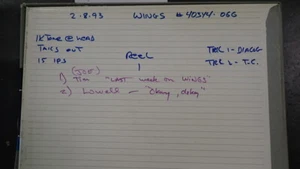 2-8-93 WINGS # 40344-056
1K TONE @ HEAD
TAILS OUT
15 IPS
REEL
1
TRK 1 - DIALOG
TRK 2 - T.C.
(JOE)
1) "LAST week on WINGS"
2) Lowell - "Okay, okay"